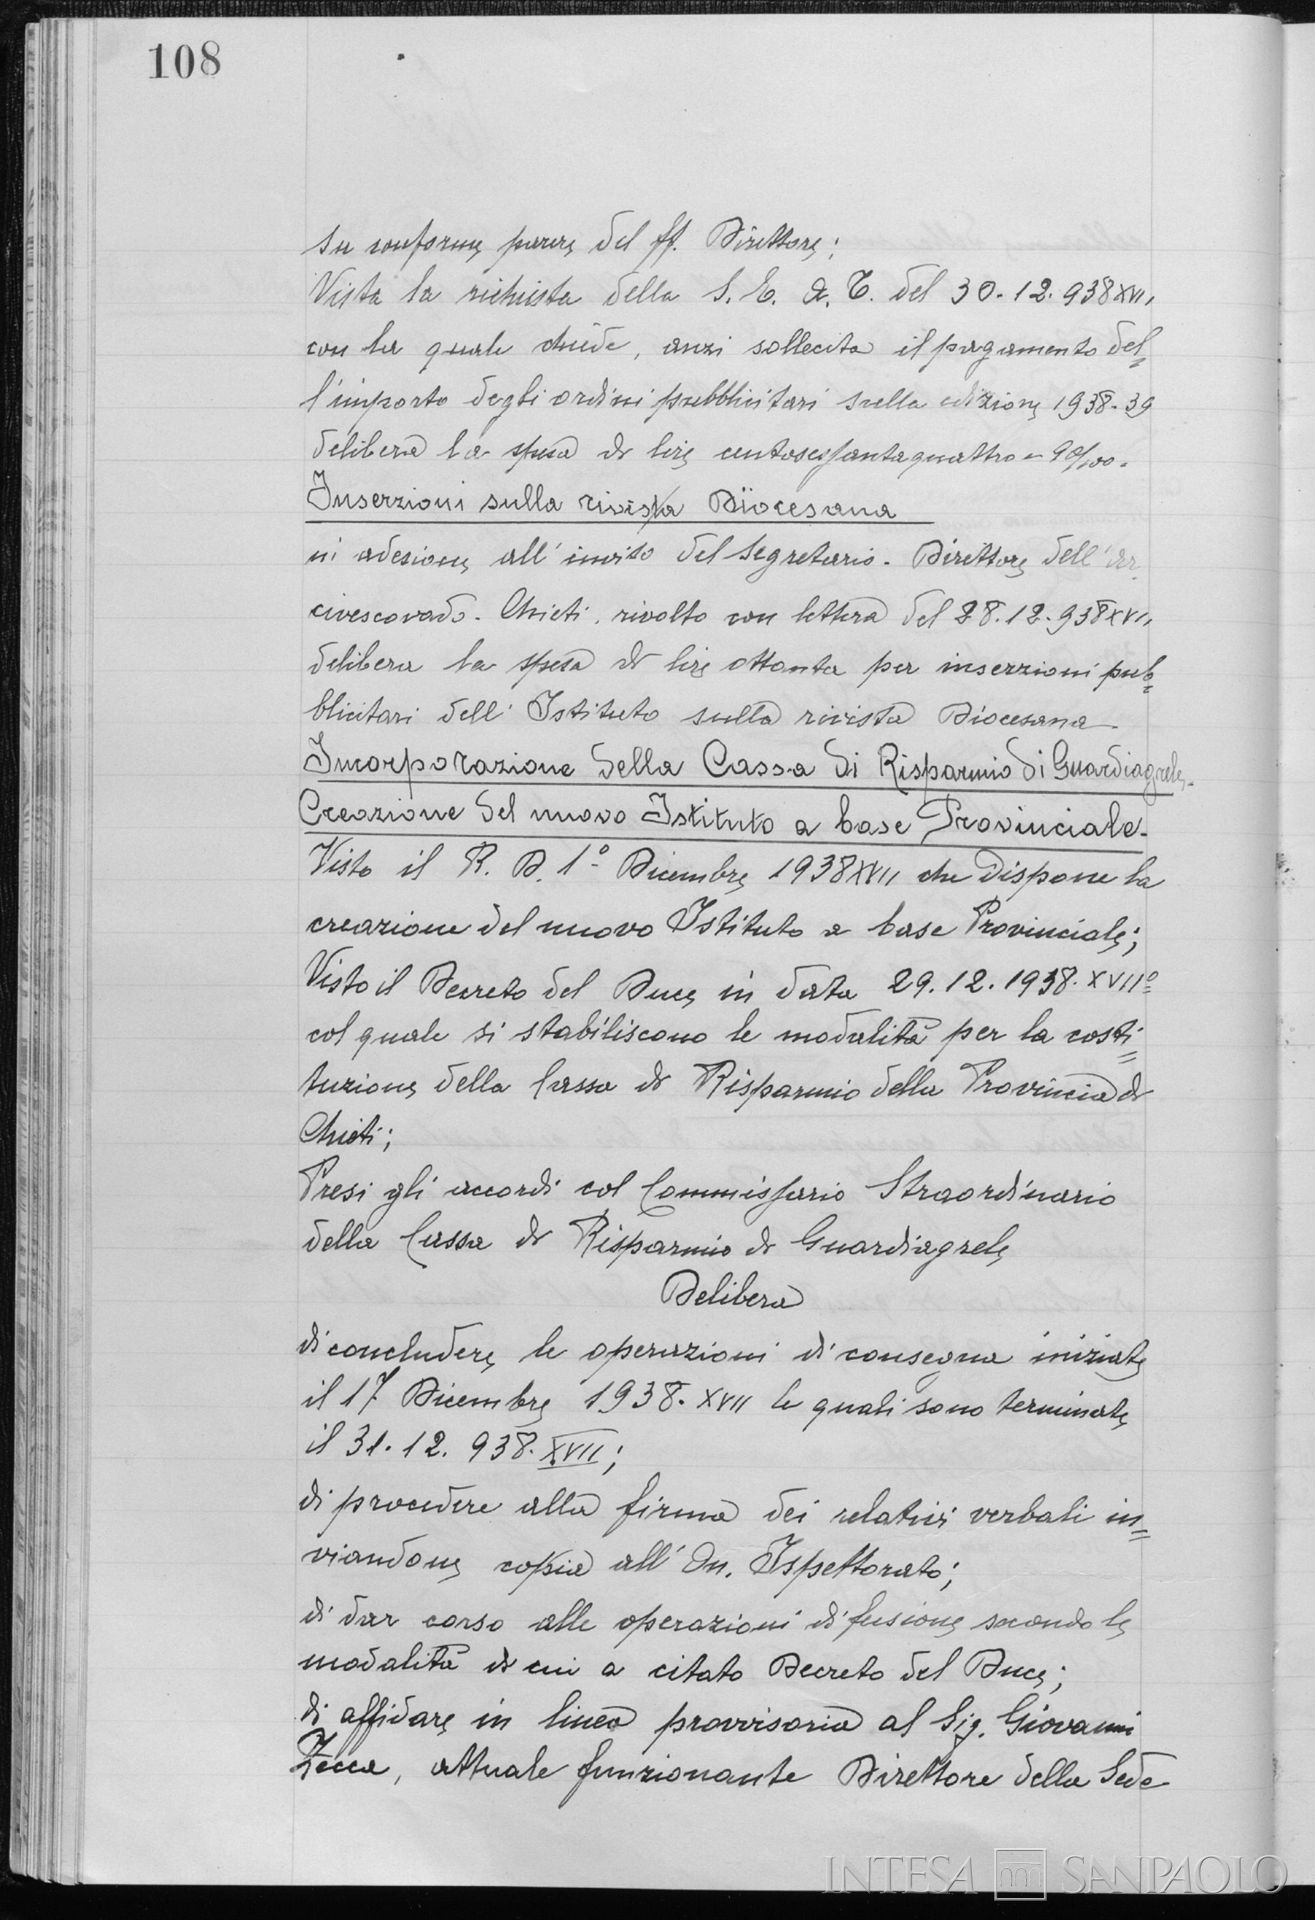 108
su conforme parere del ff. Direttore;
Vista la richiesta della S. E. A. T. del 30.12.938 XVII,
con la quale chiede, anzi sollecita il pagamento del=
l'importo degli ordini pubblicitari sulla edizione 1938-39
delibera la spesa di lire centosessantaquattro = 90/00.
Inserzioni sulla rivista Diocesana
in adesione all'invito del Segretario-Direttore dell'Ar=
civescovado-Chieti, rivolto con lettera del 28.12.938 XVII,
delibera la spesa di lire ottanta per inserzioni pub=
blicitari dell'Istituto sulla rivista Diocesana.
Incorporazione della Cassa di Risparmio di Guardiagrele.
Creazione del nuovo Istituto a base Provinciale.
Visto il R. D. 1º Dicembre 1938 XVII che dispone la
creazione del nuovo Istituto a base Provinciale;
Visto il Decreto del Duce in data 29.12.1938.XVIIº
col quale si stabiliscono le modalità per la costi=
tuzione della Cassa di Risparmio della Provincia di
Chieti;
Presi gli accordi col Commissario Straordinario
della Cassa di Risparmio di Guardiagrele
Delibera
di concludere le operazioni di consegna iniziate
il 17 Dicembre 1938.XVII le quali sono terminate
il 31.12.938.XVII;
di procedere alla firma dei relativi verbali in=
viandone copia all'On. Ispettorato;
di dar corso alle operazioni di fusione secondo le
modalità di cui a citato Decreto del Duce;
di affidare in linea provvisoria al Sig. Giovanni
Zecca, attuale funzionante Direttore della Sede
INTESA SANPAOLO